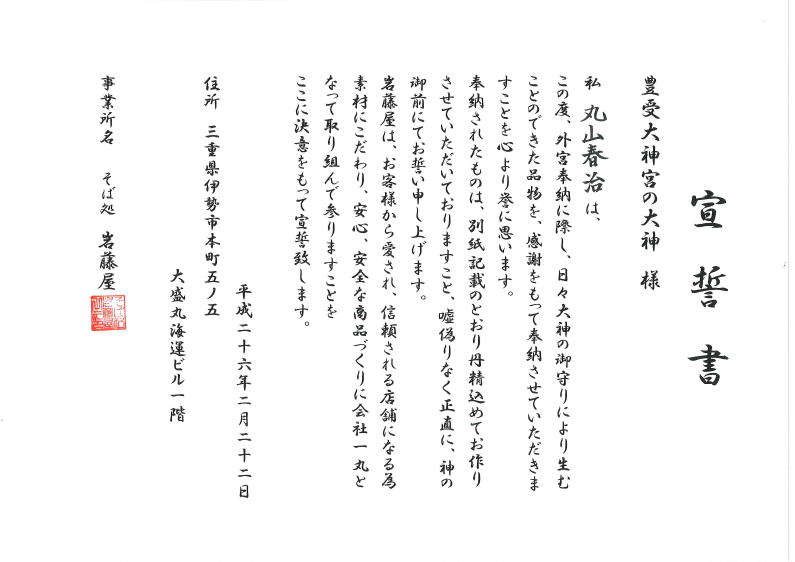 宣誓書
豊受大神宮の大神 様
私 丸山春治 は、
この度、外宮奉納に際し、日々大神の御守りにより生む
ことのできた品物を、感謝をもって奉納させていただきま
すことを心より誉に思います。
奉納されたものは、別紙記載のとおり丹精込めてお作り
させていただいておりますこと、嘘偽りなく正直に、神の
御前にてお誓い申し上げます。
岩藤屋は、お客様から愛され、信頼される店舗になる為
素材にこだわり、安心、安全な商品づくりに会社一丸と
なって取り組んで参りますことを
ここに決意をもって宣誓致します。
平成二十六年二月二十二日
住所 三重県伊勢市本町五ノ五
大盛丸海運ビル一階
事業所名 そば処 岩藤屋